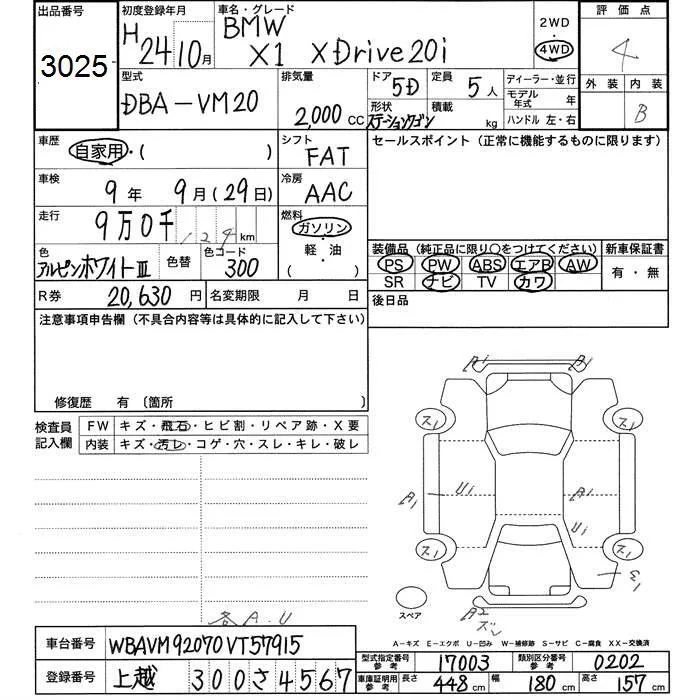 出品番号
3025
初度登録年月
H24 10月
車名・グレード
BMW
X1 XDrive20i
2WD
4WD
評価点
4
外装 内装
B
型式
DBA-VM20
排気量
2,000 CC
ドア 5D
形状 ステーションワゴン
定員 5人
積載 kg
ディーラー・並行
モデル年式 年
ハンドル 左・右
車歴
自家用・( )
シフト
FAT
セールスポイント（正常に機能するものに限ります）
車検
9年 9月(29日)
冷房
AAC
走行
9万0千129km
燃料
ガソリン
・
軽・油
( )
色
アルピンホワイトⅢ
色替
色コード
300
装備品（純正品に限り○をつけてください）
PS PW ABS エアB AW
SR ナビ TV カワ
新車保証書
有・無
R券 20,630円
名変期限 月 日
後日品
注意事項申告欄（不具合内容等は具体的に記入して下さい）
修復歴 有〔箇所 〕
検査員記入欄
FW キズ・飛石・ヒビ割・リペア跡・X要
内装 キズ・汚レ・コゲ・穴・スレ・キレ・破レ
A1 A1
ス1 ス1
A1 Ui A1
Ui
ス1 ス1
E1
スペア
A2
ズン
各A.U
A-キズ E-エクボ U-凹み W-補修跡 S-サビ C-腐食 XX-交換済
車台番号 WBAVM92070VT57915
登録番号 上越 300さ4567
型式指定番号 参考 17003
類別区分番号 参考 0202
車庫証明用 参考 長さ 448cm 幅 180cm 高さ 157cm